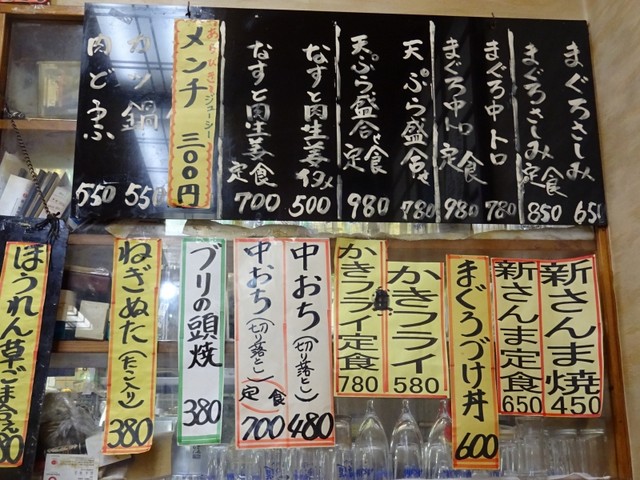 まぐろさしみ 650
まぐろさしみ定食 850
まぐろ中トロ 780
まぐろ中トロ定食 980
天ぷら盛合せ 780
天ぷら盛合せ定食 980
なすと肉生姜炒め 500
なすと肉生姜定食 700
あらびきジューシー
メンチ 三〇〇円
カツ鍋 550
肉どうふ 550
新さんま焼 450
新さんま定食 650
まぐろづけ丼 600
かきフライ 580
かきフライ定食 780
中おち(切り落とし) 480
中おち(切り落とし)定食 700
ブリの頭焼 380
ねぎぬた(たこ入り) 380
ほうれん草ごま合え